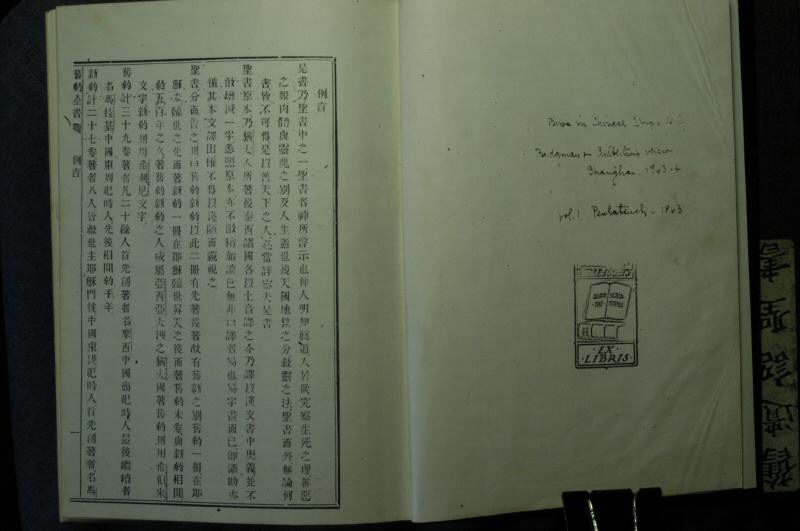 例言
是書乃聖書中之一聖書者神所啓示也俾人明知眞道人若欲究察生死之理善惡
之報肉體與靈魂之別及人生逝世後天國地獄之分救靈之法聖書而外無論何
書皆不可得是以普天下之人咸當詳察夫是書
聖書原本乃猶太人所著後泰西諸國各以土音譯之今乃譯以漢文書中奧義並不
敢增減一字悉照原本亦不敢稍加潤色無非以譯者易也易字畫而已即語助亦
僅其本文譯出惟不得以淺陋而藐視之
聖書分兩首之則曰舊約新約以此二冊有先著後著故有舊新之別舊約一冊在耶
穌未臨世之先而著新約一冊在耶穌臨世昇天之後而著舊約末卷與新約相間
約五百年之久著舊約新約之人咸屬亞西亞大洲之猶太國著舊約則用希伯來
文字新約則用希利尼文字
舊約計三十九卷著者凡二十餘人首先創著者名摩西中國商紀時人最後繼續者
名馬拉基中國東周紀時人先後相間約千年
新約計二十七卷著者八人皆救世主耶穌門徒中國東漢紀時人首先創著者名馬
舊約全書
例言
一
Bible in Chinese
Bridgman & Culbertson version
Shanghai, 1903-4
vol. 1 Pentateuch - 1903
EX
LIBRIS
舊遺詔聖書